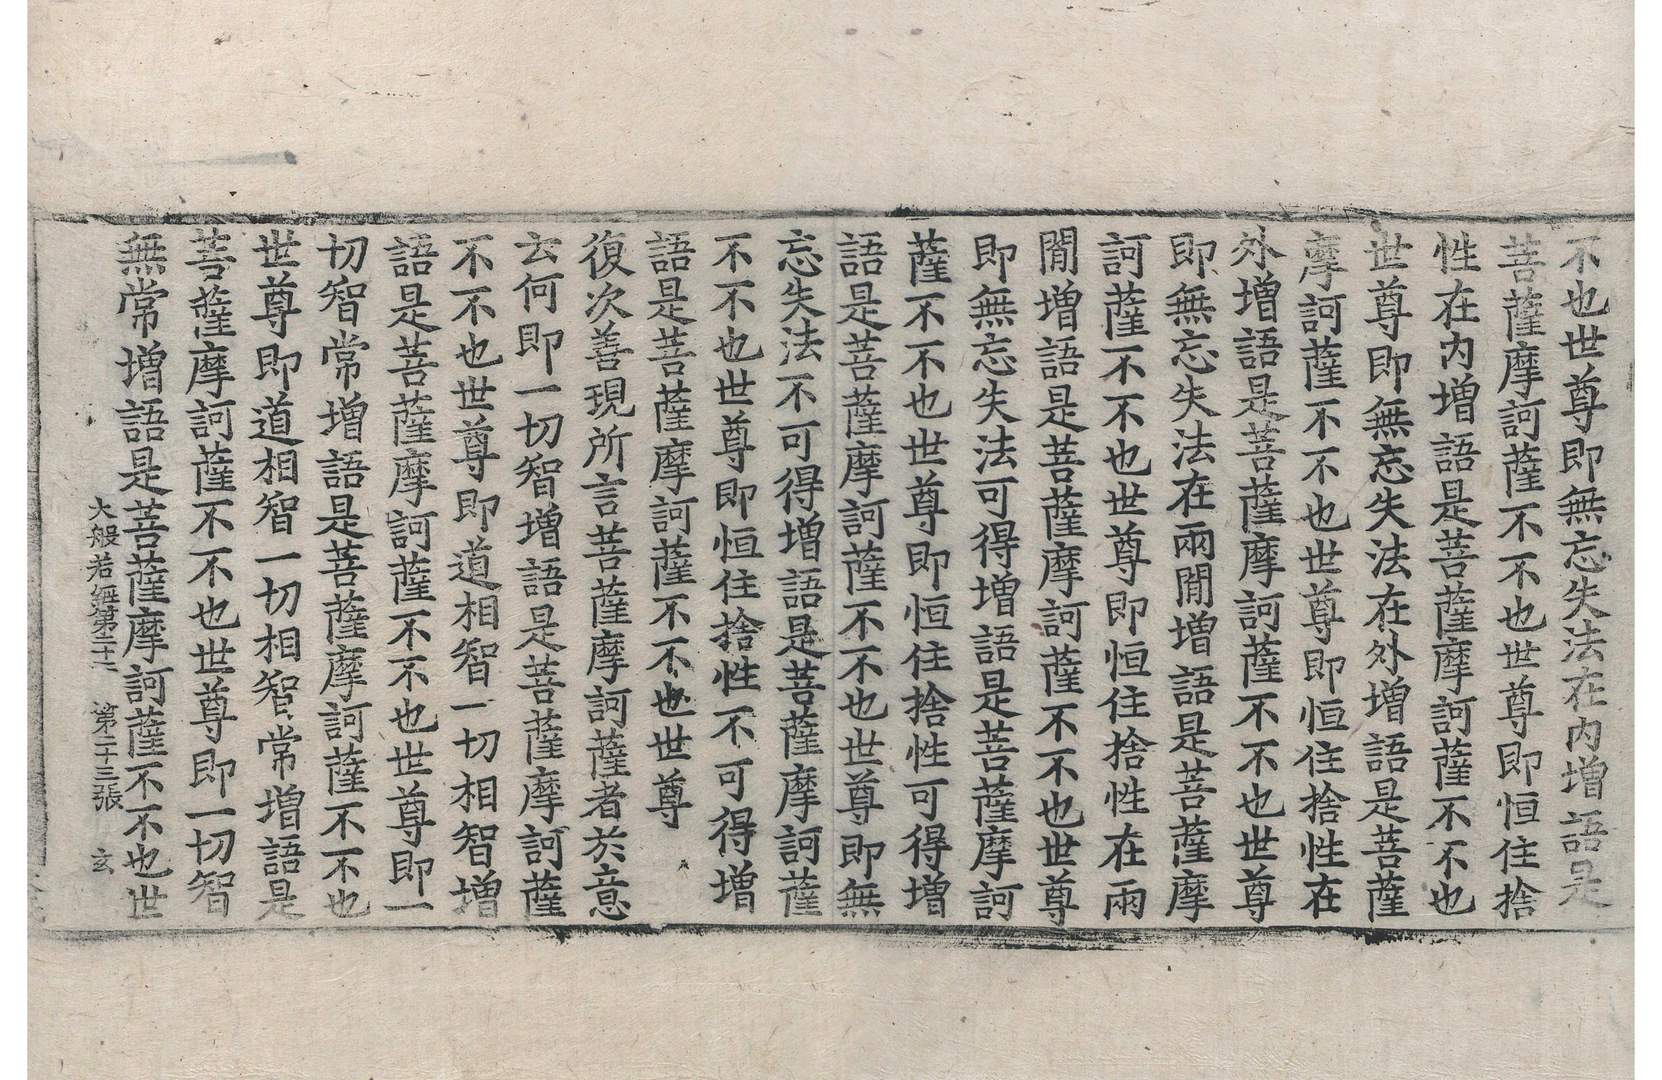 不也世尊即無忘失法在內增語是
菩薩摩訶薩不不也世尊即恒住捨
性在內增語是菩薩摩訶薩不不也
世尊即無忘失法在外增語是菩薩
摩訶薩不不也世尊即恒住捨性在
外增語是菩薩摩訶薩不不也世尊
即無忘失法在兩閒增語是菩薩摩
訶薩不不也世尊即恒住捨性在兩
閒增語是菩薩摩訶薩不不也世尊
即無忘失法可得增語是菩薩摩訶
薩不不也世尊即恒住捨性可得增
語是菩薩摩訶薩不不也世尊即無
忘失法不可得增語是菩薩摩訶薩
不不也世尊即恒住捨性不可得增
語是菩薩摩訶薩不不也世尊
復次善現所言菩薩摩訶薩者於意
云何即一切智增語是菩薩摩訶薩
不不也世尊即道相智一切相智增
語是菩薩摩訶薩不不也世尊即一
切智常增語是菩薩摩訶薩不不也
世尊即道相智一切相智常增語是
菩薩摩訶薩不不也世尊即一切智
無常增語是菩薩摩訶薩不不也世
大般若經第三十二 第二十三張 玄